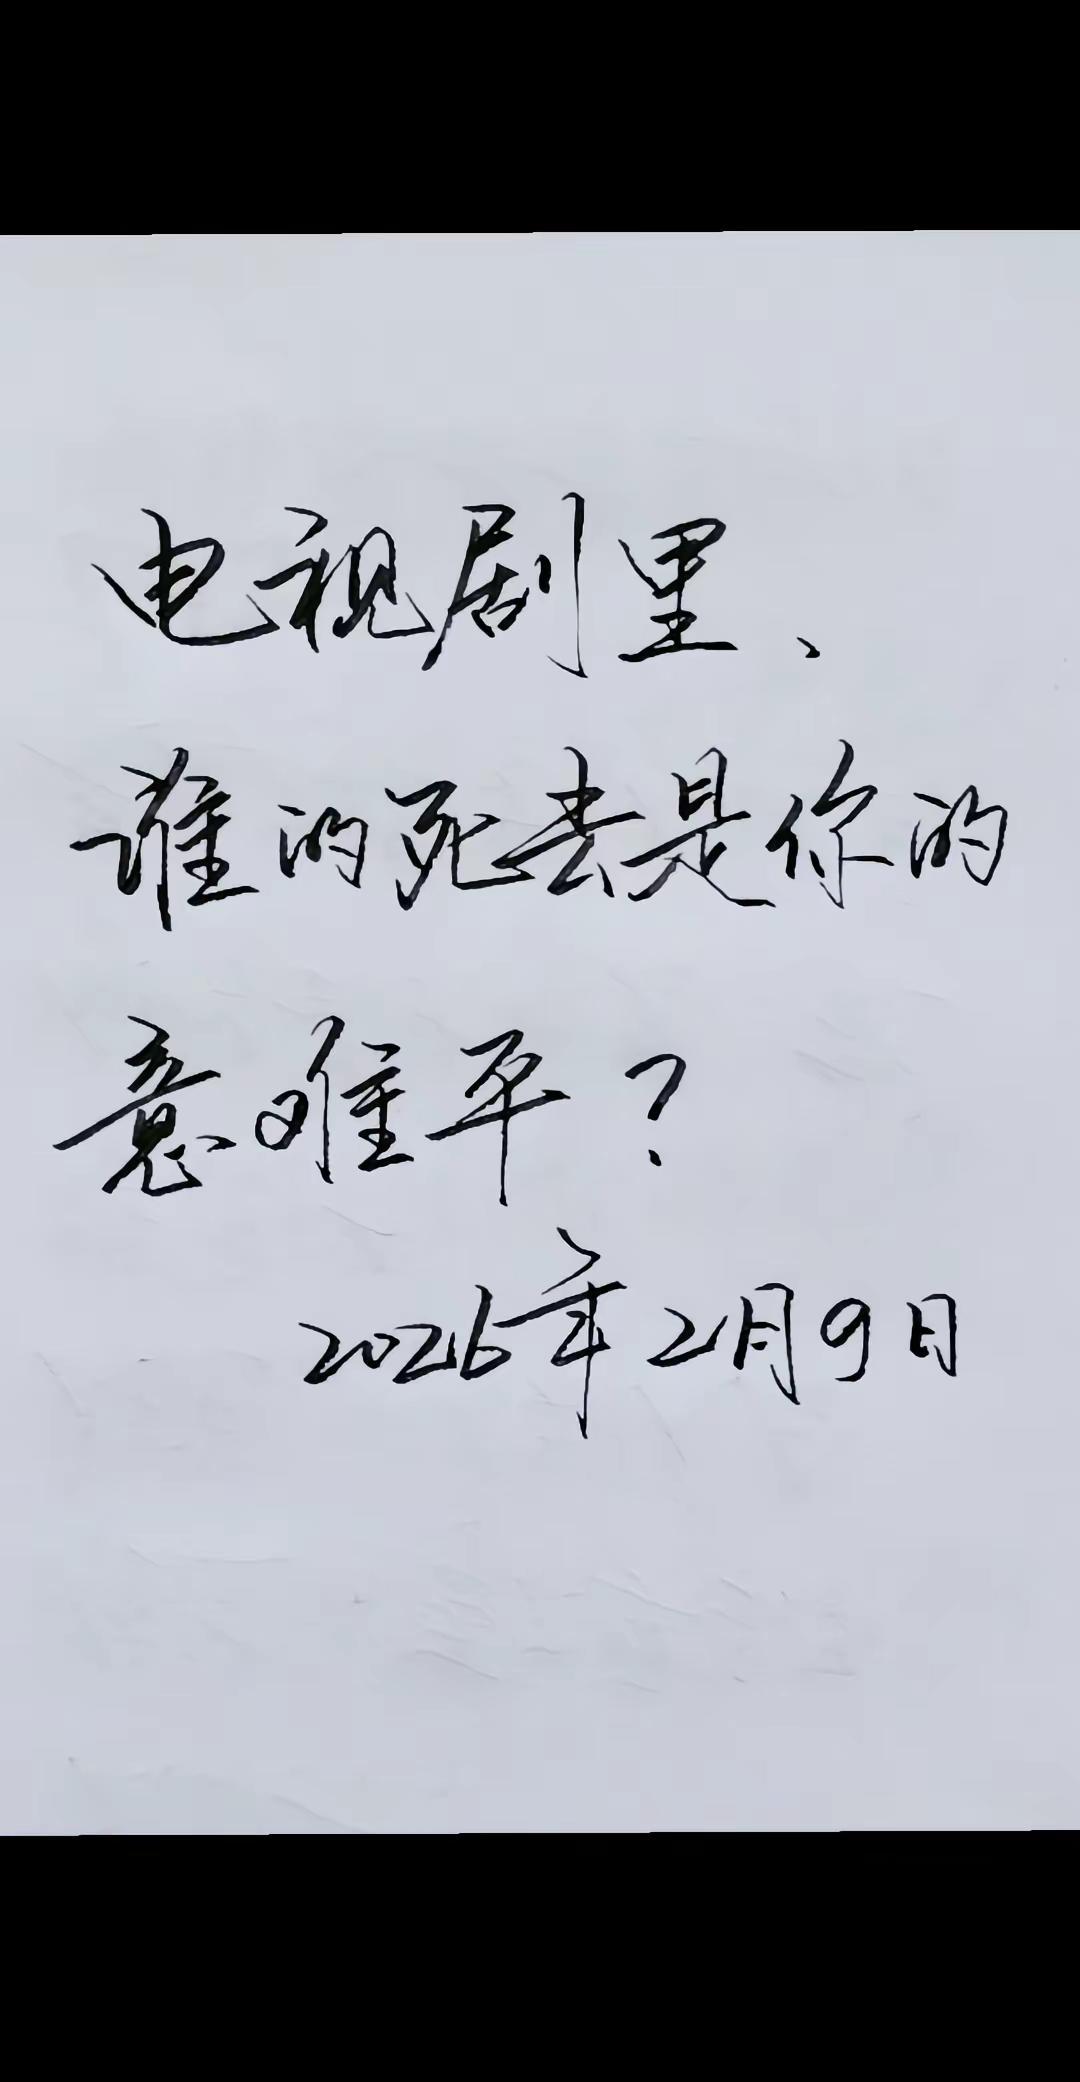 电视剧里、
谁的死去是你的
意难平？
2026年2月9日